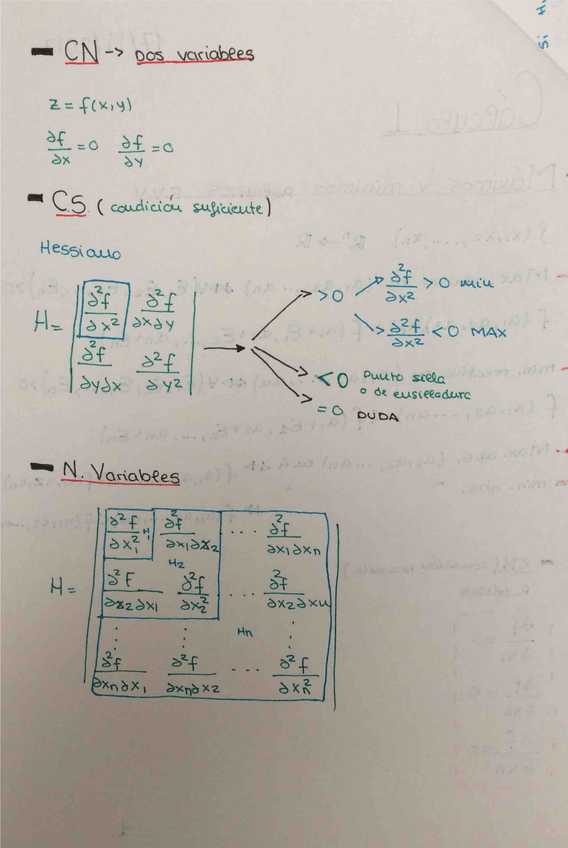 - CN -> DOS variables
z = f(x,y)
∂f/∂x = 0 ∂f/∂y = 0
- C.S. (condición suficiente)
Hessiano
H = | ∂²f/∂x² ∂²f/∂x∂y |
| ∂²f/∂y∂x ∂²f/∂y² |
>0 ∂²f/∂x² > 0 min
∂²f/∂x² < 0 MAX
<0 Punto silla
o de ensilladura
= 0 DUDA
- N. Variables
H = | ∂²f/∂x₁² H₁ ∂²f/∂x₁∂x₂ ... ∂²f/∂x₁∂xn |
H₂
| ∂²F/∂x₂∂x₁ ∂²f/∂x₂² ... ∂²f/∂x₂∂xn |
⋮ ⋮ Hn ⋮
| ∂²f/∂xn∂x₁ ∂²f/∂xn∂x₂ ... ∂²f/∂xn² |